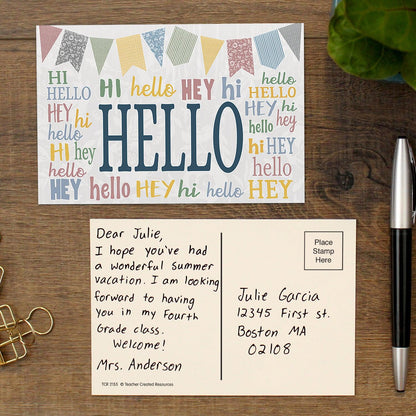 HI HI hello HEY hi hello
HELLO HELLO
HEY hi HELLO HEY hi
hello hello HEY
HI hey HI hello
hello HELLO
HEY hello HEY hi hello HEY
Dear Julie,
I hope you've had
a wonderful summer
vacation. I am looking
forward to having
you in my Fourth
Grade class.
Welcome!
Mrs. Anderson
TCR 2155 © Teacher Created Resources
Place
Stamp
Here
Julie Garcia
12345 First st.
Boston MA
02108